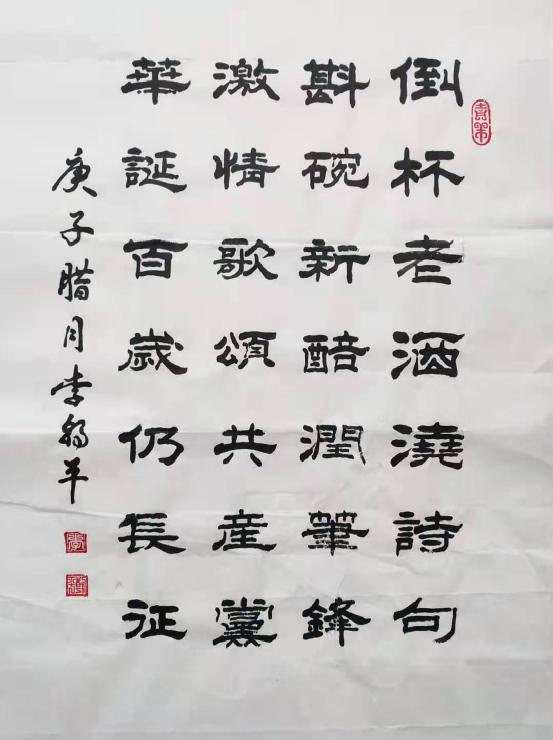 倒杯老酒澆詩句
斟碗新醅潤筆鋒
激情歌頌共産黨
華誕百歲仍長征
庚子腊月李平